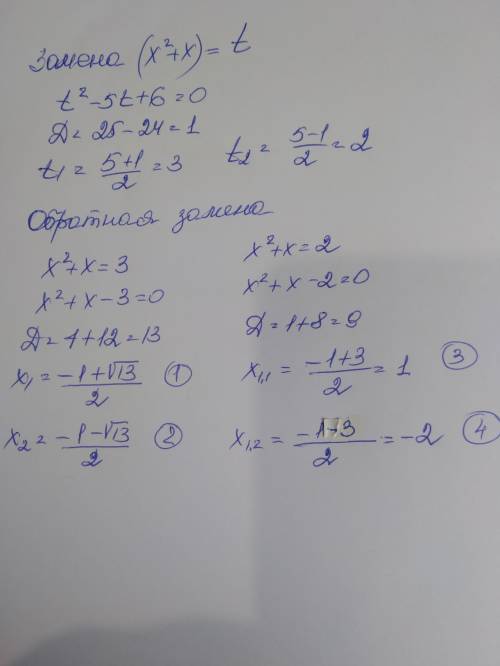 Замена (x²+x) = t
t² -5t+6 =0
Д = 25-24=1
t₁ = (5+1)/2 = 3
t₂ = (5-1)/2 = 2
Обратная замена
x²+x=3
x²+x-3=0
Д=1+12=13
x₁ = (-1+√13)/2 ①
x₂ = (-1-√13)/2 ②
x²+x=2
x²+x-2=0
Д=1+8=9
x₁,₁ = (-1+3)/2 = 1 ③
x₁,₂ = (-1-3)/2 = -2 ④